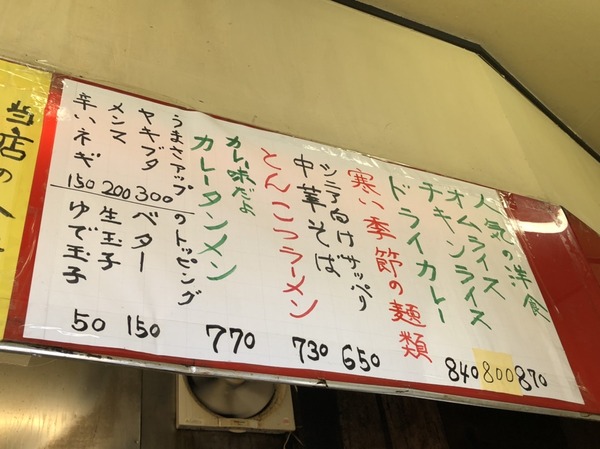 人気の洋食
オムライス 870
チキンライス 800
ドライカレー 840
寒い季節の麺類
シニア向けサッパリ
中華そば 650
とんこつラーメン 730
カレー味だよ
カレータンメン 770
うまさアップのトッピング
ヤキブタ 300
メンマ 200
辛いネギ 150
バター 150
生玉子
ゆで玉子 50
当店の